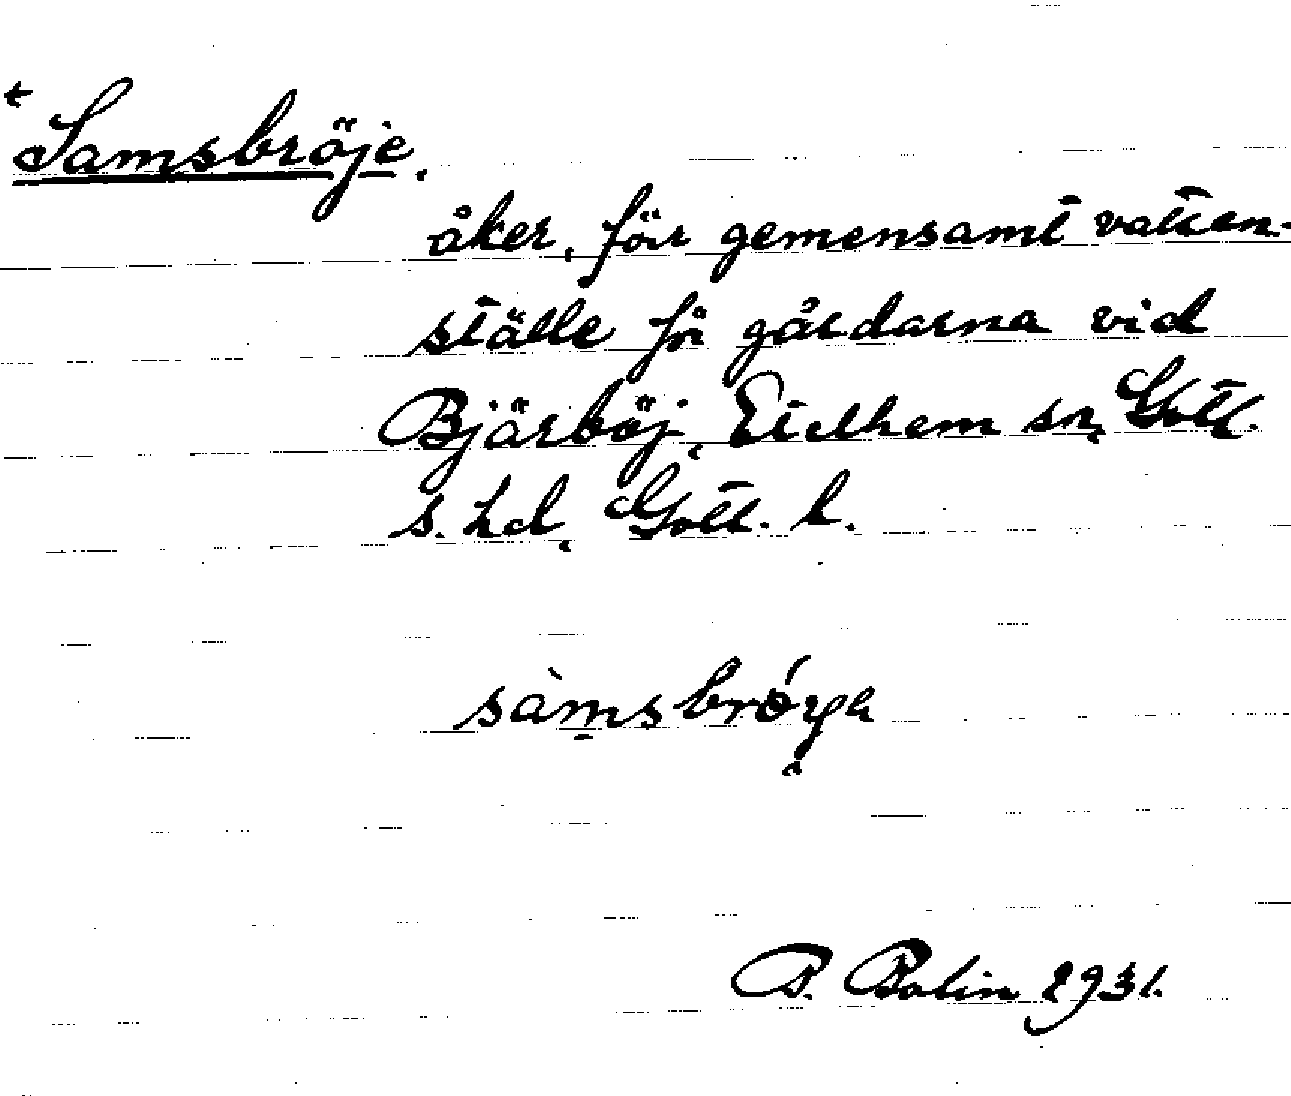 Samsbröje.
åker, förr gemensamt vatten-
ställe på gårdarna vid
Bjärböj, Etelhem sn, Gotl.
s. hd, Gotl. l.
sàmsbröya
P. Bolin 1931.